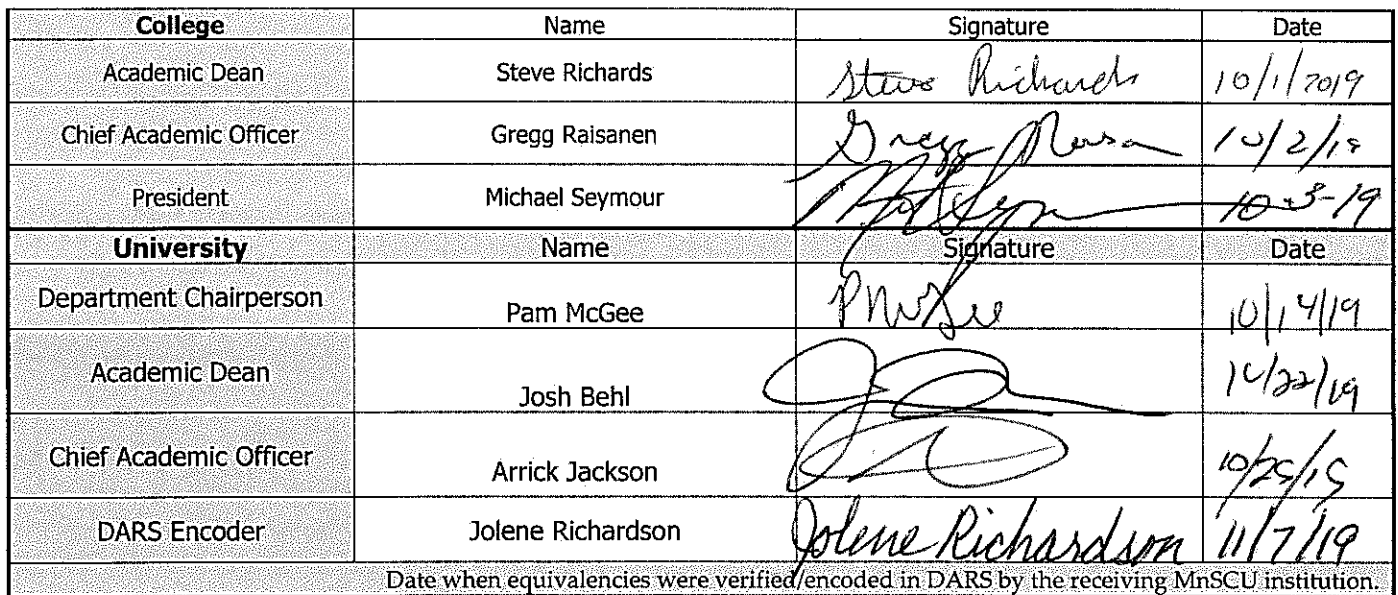 College Name Signature Date
Academic Dean Steve Richards Steve Richards 10/1/2019
Chief Academic Officer Gregg Raisanen Gregg 10/2/19
President Michael Seymour 10-3-19
University Name Signature Date
Department Chairperson Pam McGee PMcGee 10/14/19
Academic Dean Josh Behl 10/22/19
Chief Academic Officer Arrick Jackson 10/25/19
DARS Encoder Jolene Richardson Jolene Richardson 11/7/19
Date when equivalencies were verified/encoded in DARS by the receiving MnSCU institution.